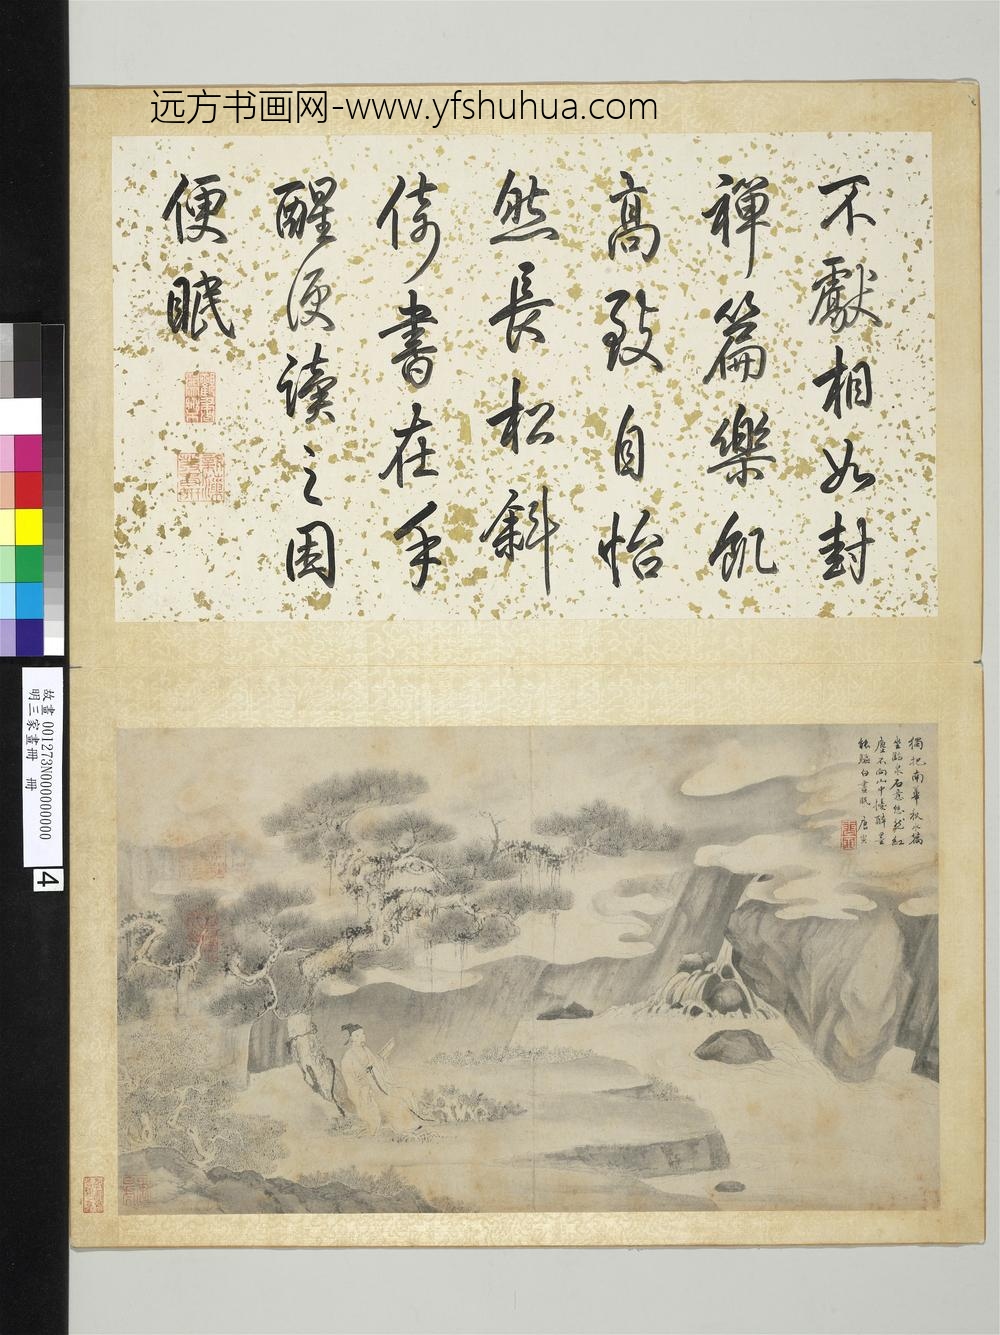 远方书画网-www.yfshuhua.com
不獻相如封
禪篇樂飢
高致自怡
然長松斜
倚書在手
醒便讀之困
便眠
獨把南華秋水篇
坐臨泉石意悠然紅
塵不向山中
白晝眠 唐寅
故畫 001273N000000000
明三家畫冊 冊
4